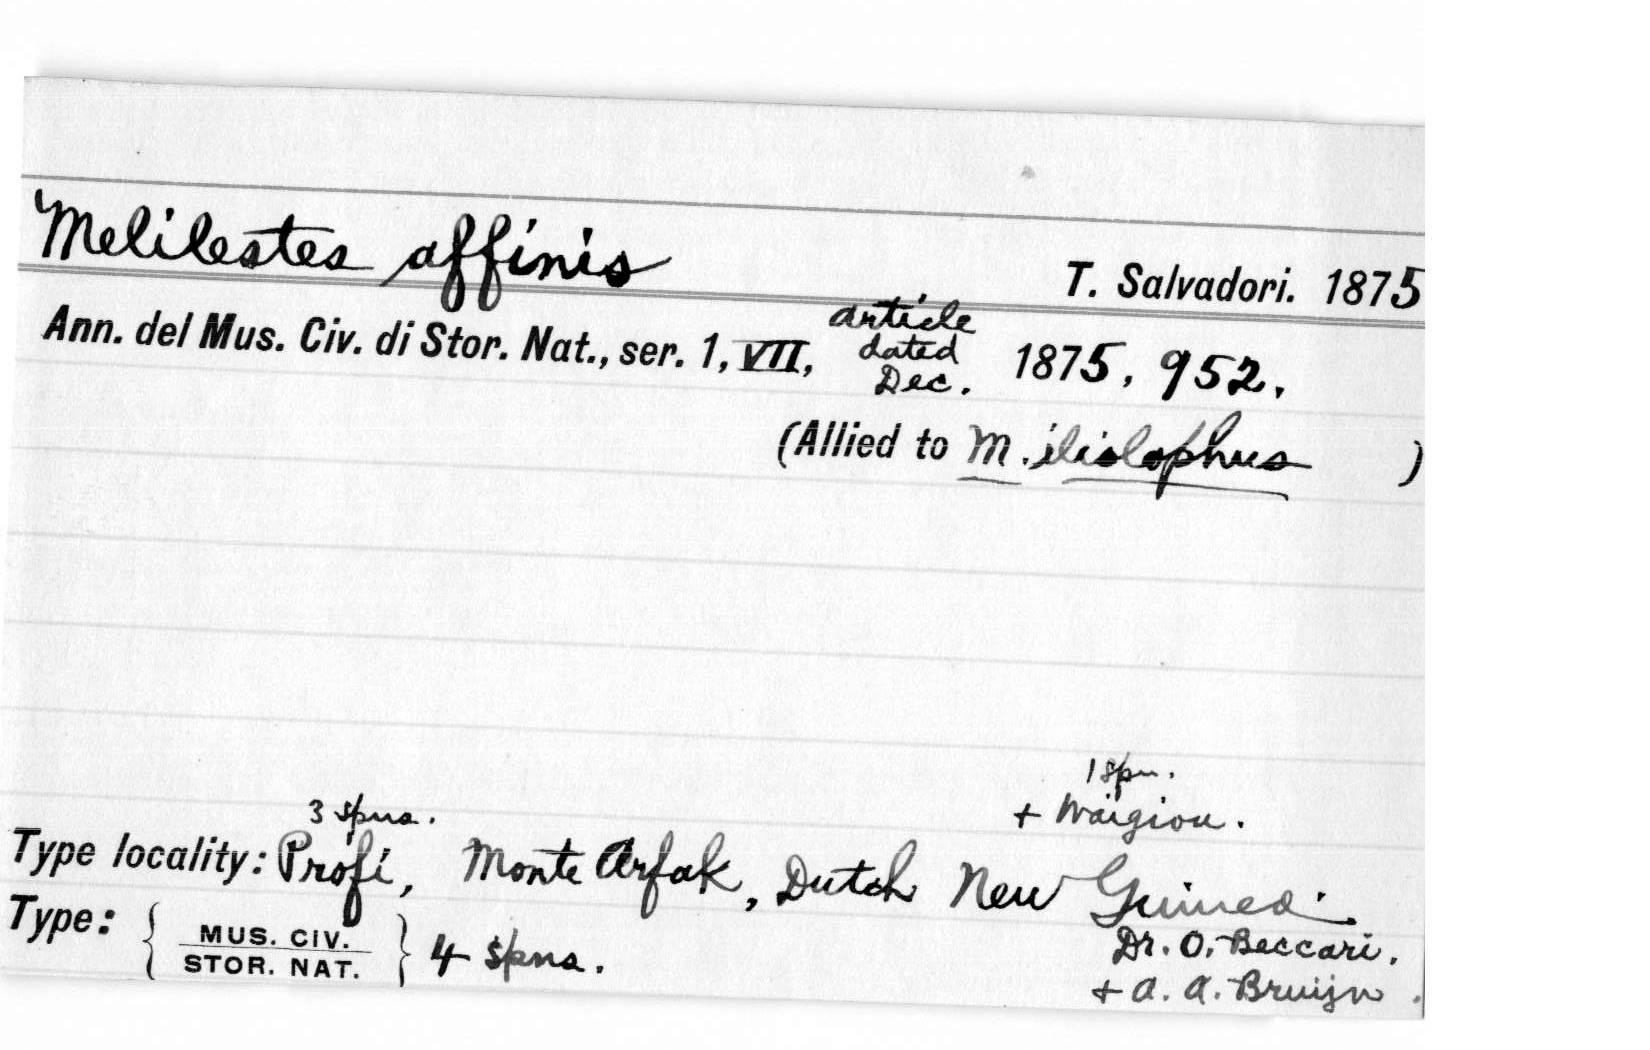 Melilestes affinis
T. Salvadori. 1875
Ann. del Mus. Civ. di Stor. Nat., ser. 1, VII, article dated Dec. 1875, 952.
(Allied to M. iliolophus )
1 spn.
3 spns. + Waigiou.
Type locality: Profi, Monte Arfak, Dutch New Guinea.
Type: { MUS. CIV. STOR. NAT. } 4 spns.
Dr. O. Beccari.
+ A. A. Bruijn.